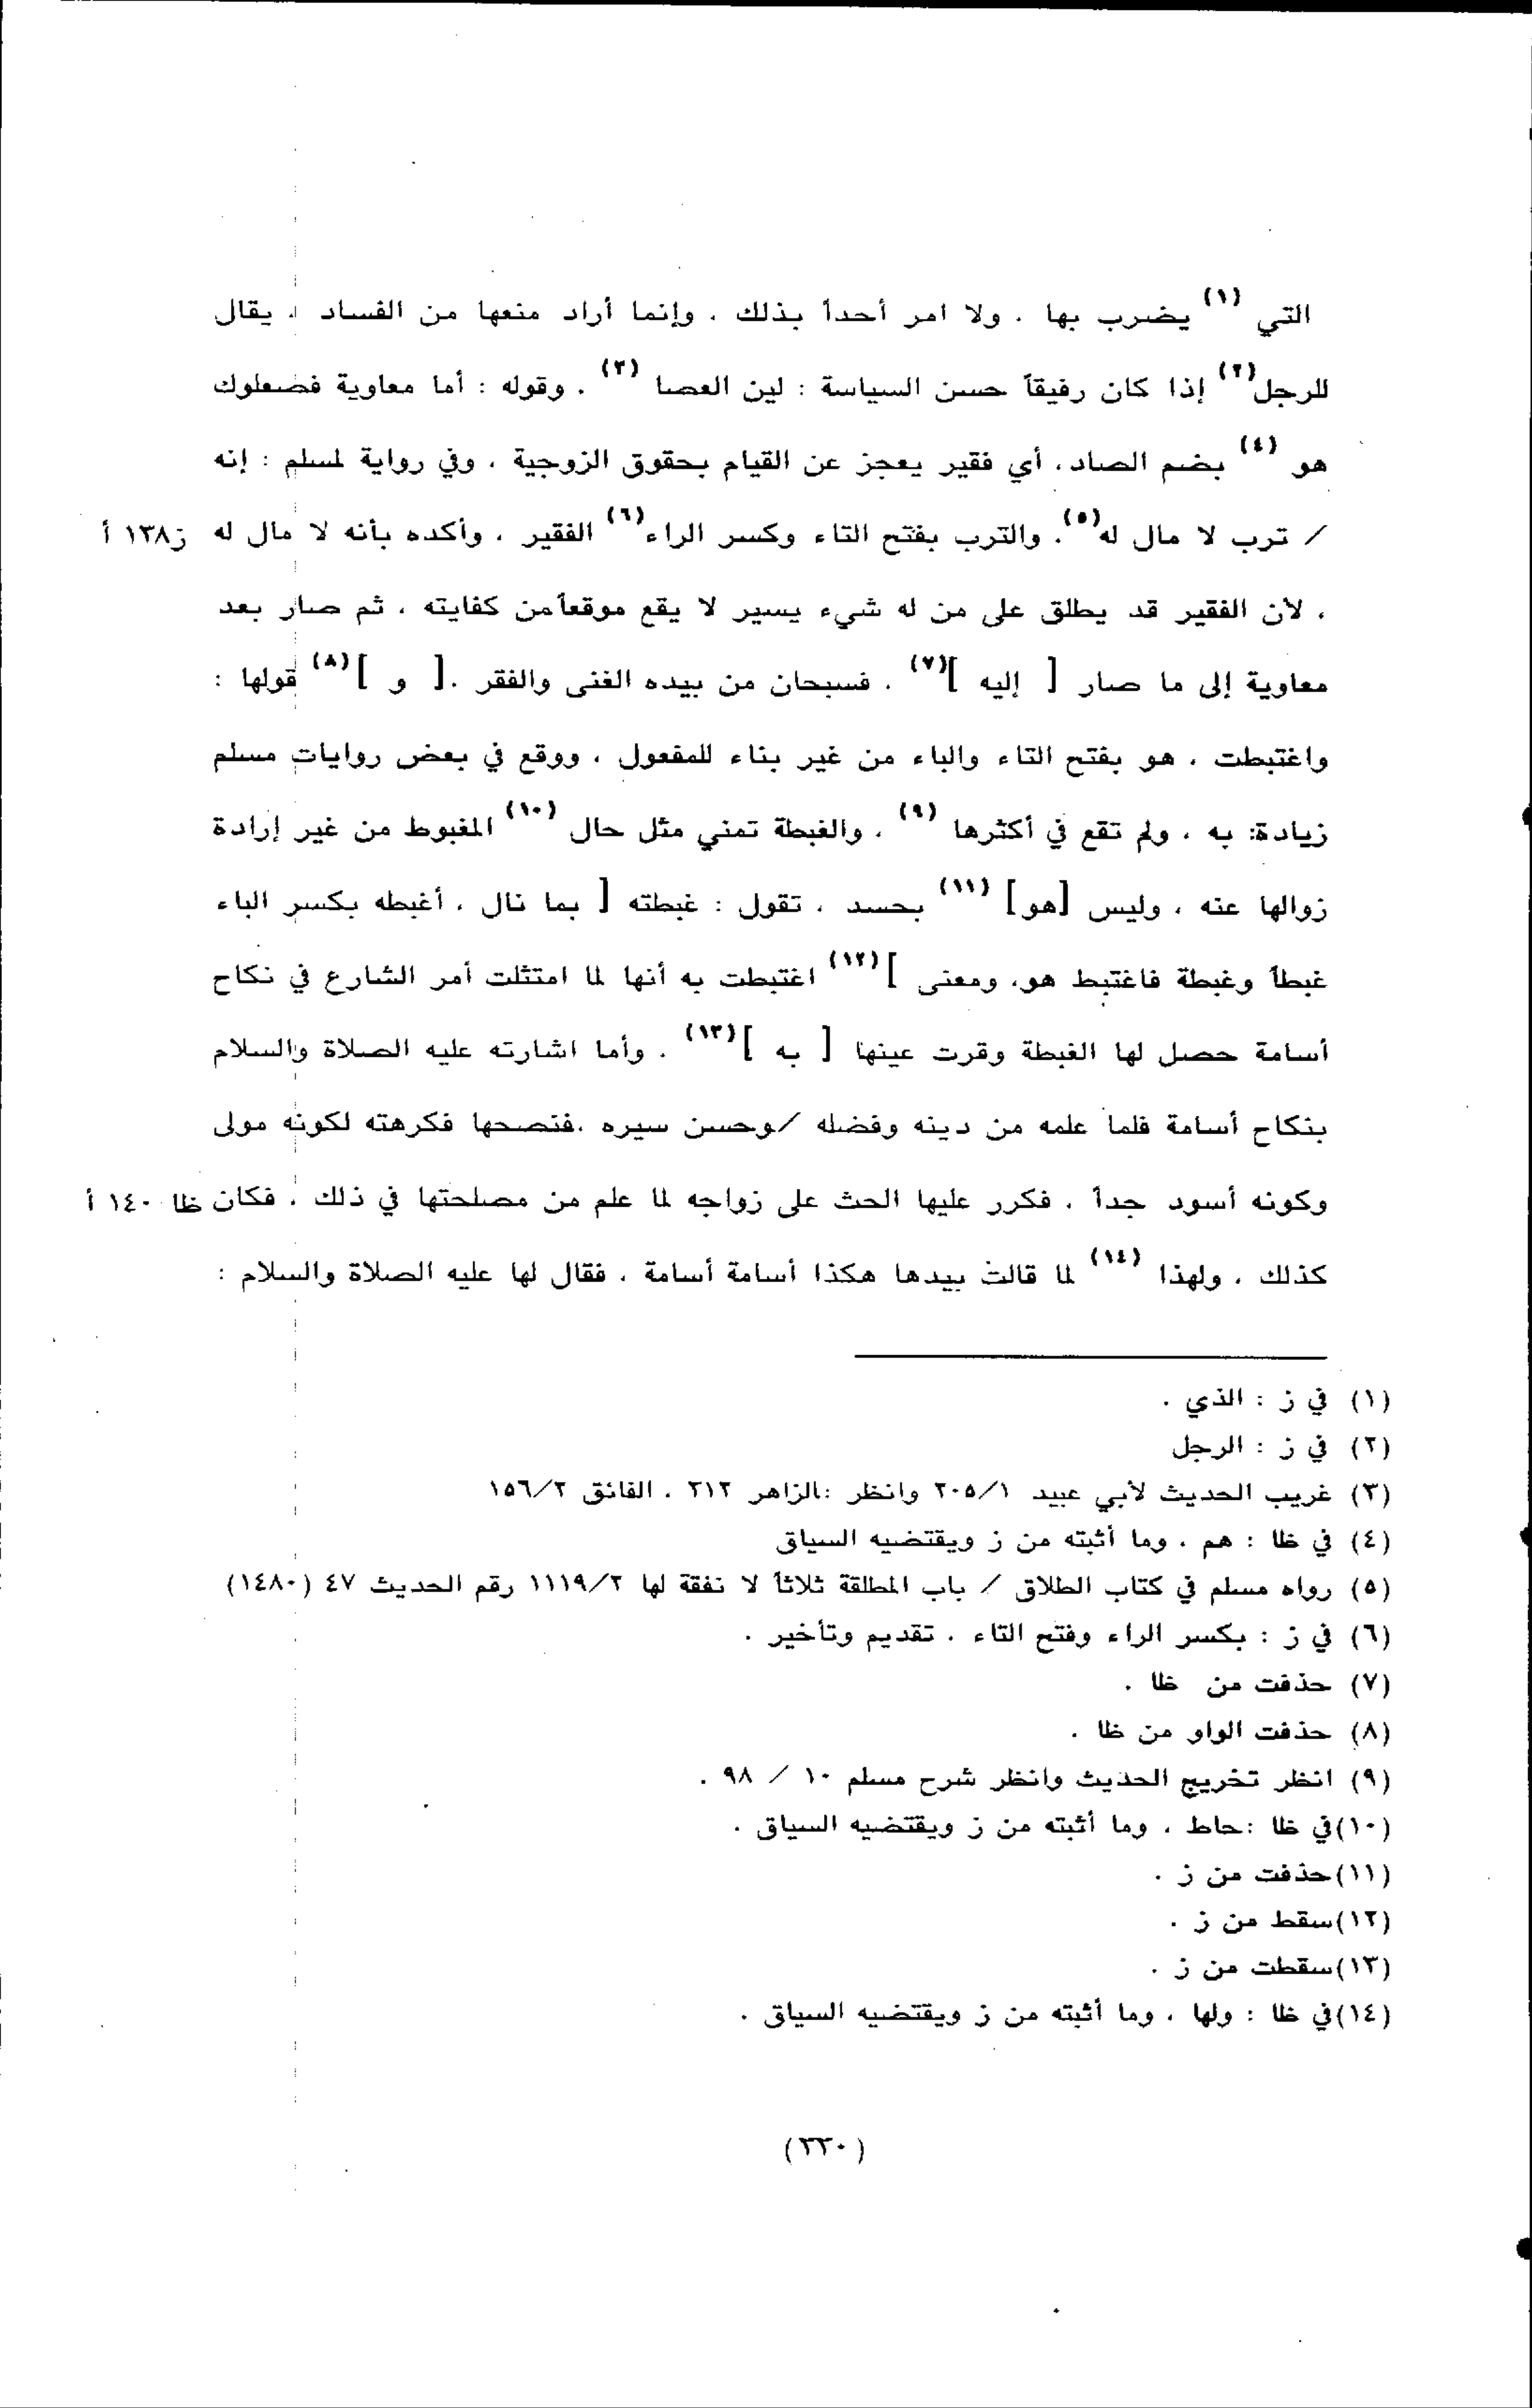 التي (١) يضرب بها ، ولا امر أحداً بذلك ، وإنما أراد منعها من الفساد ، يقال
للرجل(٢) إذا كان رفيقاً حسن السياسة : لين العصا (٣) . وقوله : أما معاوية فصعلوك
هو (٤) بضم الصاد، أي فقير يعجز عن القيام بحقوق الزوجية ، وفي رواية لمسلم : إنه
/ ترب لا مال له(٥). والترب بفتح التاء وكسر الراء(٦) الفقير ، وأكده بأنه لا مال له ز١٣٨ أ
، لأن الفقير قد يطلق على من له شيء يسير لا يقع موقعاً من كفايته ، ثم صار بعد
معاوية إلى ما صار [ إليه ](٧) . فسبحان من بيده الغنى والفقر .[ و ](٨) قولها :
واغتبطت ، هو بفتح التاء والباء من غير بناء للمفعول ، ووقع في بعض روايات مسلم
زيادة: به ، ولم تقع في أكثرها (٩) ، والغبطة تمني مثل حال (١٠) المغبوط من غير إرادة
زوالها عنه ، وليس [هو] (١١) بحسد ، تقول : غبطته [ بما نال ، أغبطه بكسر الباء
غبطاً وغبطة فاغتبط هو، ومعنى ](١٢) اغتبطت به أنها لما امتثلت أمر الشارع في نكاح
أسامة حصل لها الغبطة وقرت عينها [ به ](١٣) . وأما اشارته عليه الصلاة والسلام
بنكاح أسامة فلما علمه من دينه وفضله /وحسن سيره ،فنصحها فكرهته لكونه مولى
وكونه أسود جداً ، فكرر عليها الحث على زواجه لما علم من مصلحتها في ذلك ، فكان ظا ١٤٠ أ
كذلك ، ولهذا (١٤) لما قالت بيدها هكذا أسامة أسامة ، فقال لها عليه الصلاة والسلام :
(١) في ز : الذي .
(٢) في ز : الرجل
(٣) غريب الحديث لأبي عبيد ٢٠٥/١ وانظر :الزاهر ٣١٢ ، الفائق ١٥٦/٢
(٤) في ظا : هم ، وما أثبته من ز ويقتضيه السياق
(٥) رواه مسلم في كتاب الطلاق / باب المطلقة ثلاثاً لا نفقة لها ١١١٩/٢ رقم الحديث ٤٧ (١٤٨٠)
(٦) في ز : بكسر الراء وفتح التاء ، تقديم وتأخير .
(٧) حذفت من ظا .
(٨) حذفت الواو من ظا .
(٩) انظر تخريج الحديث وانظر شرح مسلم ١٠ / ٩٨ .
(١٠)في ظا :حاط ، وما أثبته من ز ويقتضيه السياق .
(١١)حذفت من ز .
(١٢)سقط من ز .
(١٣)سقطت من ز .
(١٤)في ظا : ولها ، وما أثبته من ز ويقتضيه السياق .
(٣٣٠)